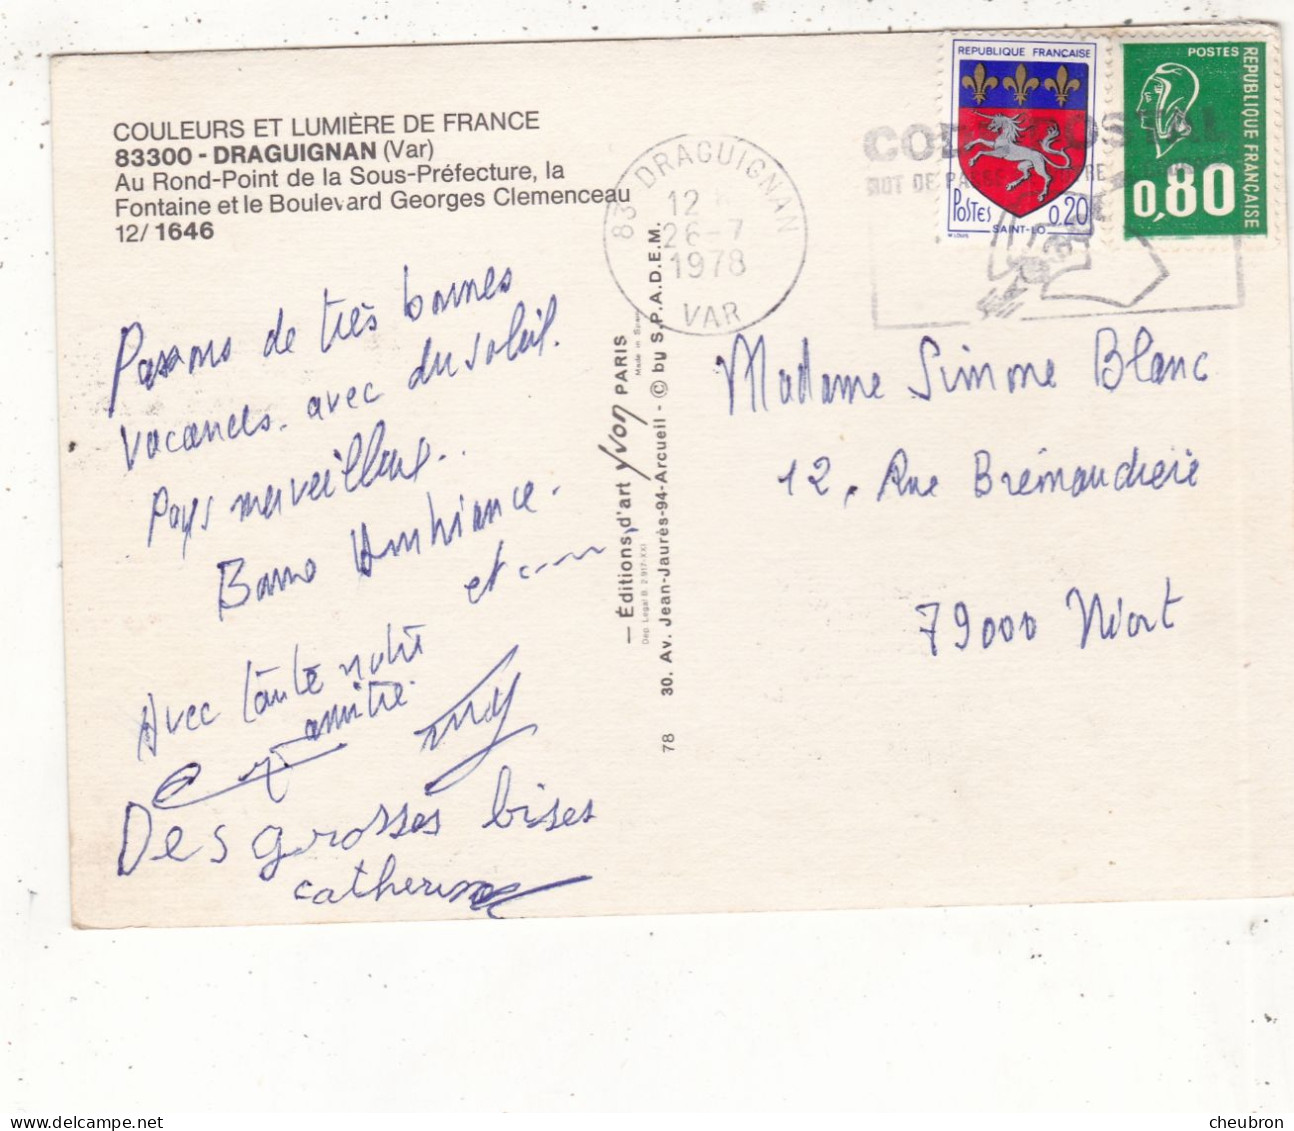 COULEURS ET LUMIÈRE DE FRANCE
83300 - DRAGUIGNAN (Var)
Au Rond-Point de la Sous-Préfecture, la
Fontaine et le Boulevard Georges Clemenceau
12/ 1646
Passons de très bonnes
vacances. avec du soleil.
Pays merveilleux..
Bonne Ambiance.
et
Avec toute notre
amitié.
Des grosses bises
catherine
— Éditions d'art yvon PARIS
Made in
Dep. Legal B. 2.917-XXI
30. Av. Jean-Jaurès-94-Arcueil - © by S.P.A.D.E.M.
78
83 DRAGUIGNAN
12 H
26-7
1978
VAR
CODE POSTAL
MOT DE PASSE
REPUBLIQUE FRANÇAISE
POSTES 0,20
SAINT-LO
POSTES
REPUBLIQUE FRANÇAISE
0,80
Madame Simone Blanc
12, Rue Brémaudière
79000 Niort
cheubron